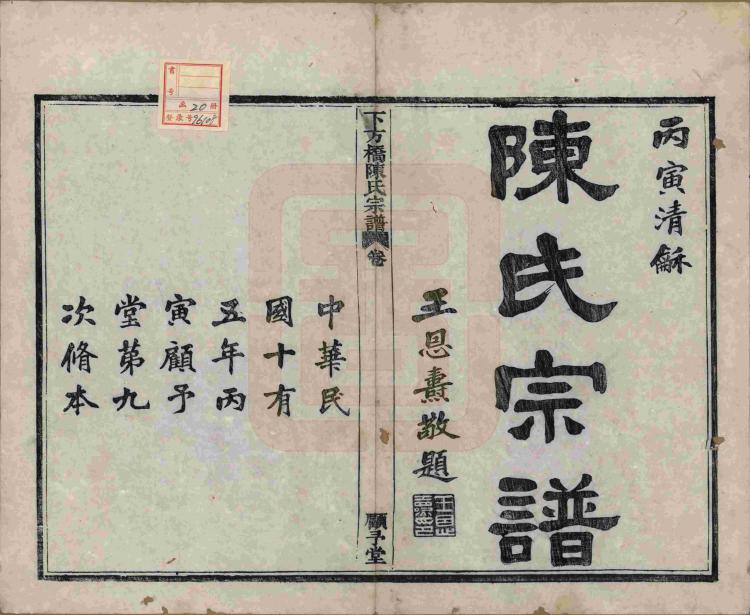 丙寅清龢
陳氏宗譜
王恩燾敬題
下方橋陳氏宗譜 卷
顧予堂
中華民
國十有
五年丙
寅顧予
堂第九
次脩本
書號
函 20 冊
登录号